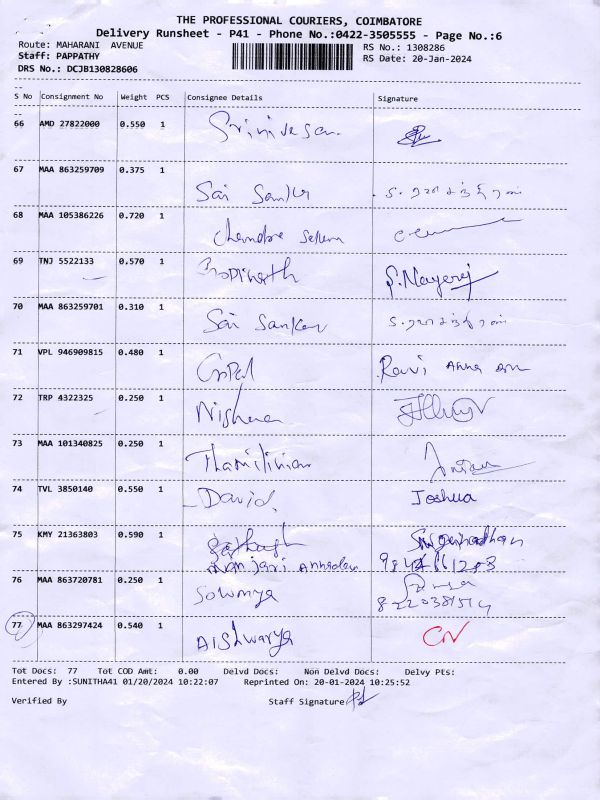 THE PROFESSIONAL COURIERS, COIMBATORE
Delivery Runsheet - P41 - Phone No.:0422-3505555 - Page No.:6
Route: MAHARANI AVENUE RS No.: 1308286
Staff: PAPPATHY RS Date: 20-Jan-2024
DRS No.: DCJB130828606
S No Consignment No Weight PCS Consignee Details Signature
66 AMD 27822000 0.550 1 Srinivasan.
67 MAA 863259709 0.375 1 Sai Sankar
68 MAA 105386226 0.720 1 Chandra Sekaran
69 TNJ 5522133 0.570 1 Gopinath S.Nagaraj
70 MAA 863259701 0.310 1 Sai Sankar
71 VPL 946909815 0.480 1 Gopal Ravi Anna
72 TRP 4322325 0.250 1
73 MAA 101340825 0.250 1
74 TVL 3850140 0.550 1 David. Joshua
75 KMY 21363803 0.590 1
76 MAA 863720781 0.250 1 Sowmya
77 MAA 863297424 0.540 1 Aishwarya CN
Tot Docs: 77 Tot COD Amt: 0.00 Delvd Docs: Non Delvd Docs: Delvy Pts:
Entered By :SUNITHA41 01/20/2024 10:22:07 Reprinted On: 20-01-2024 10:25:52
Verified By Staff Signature